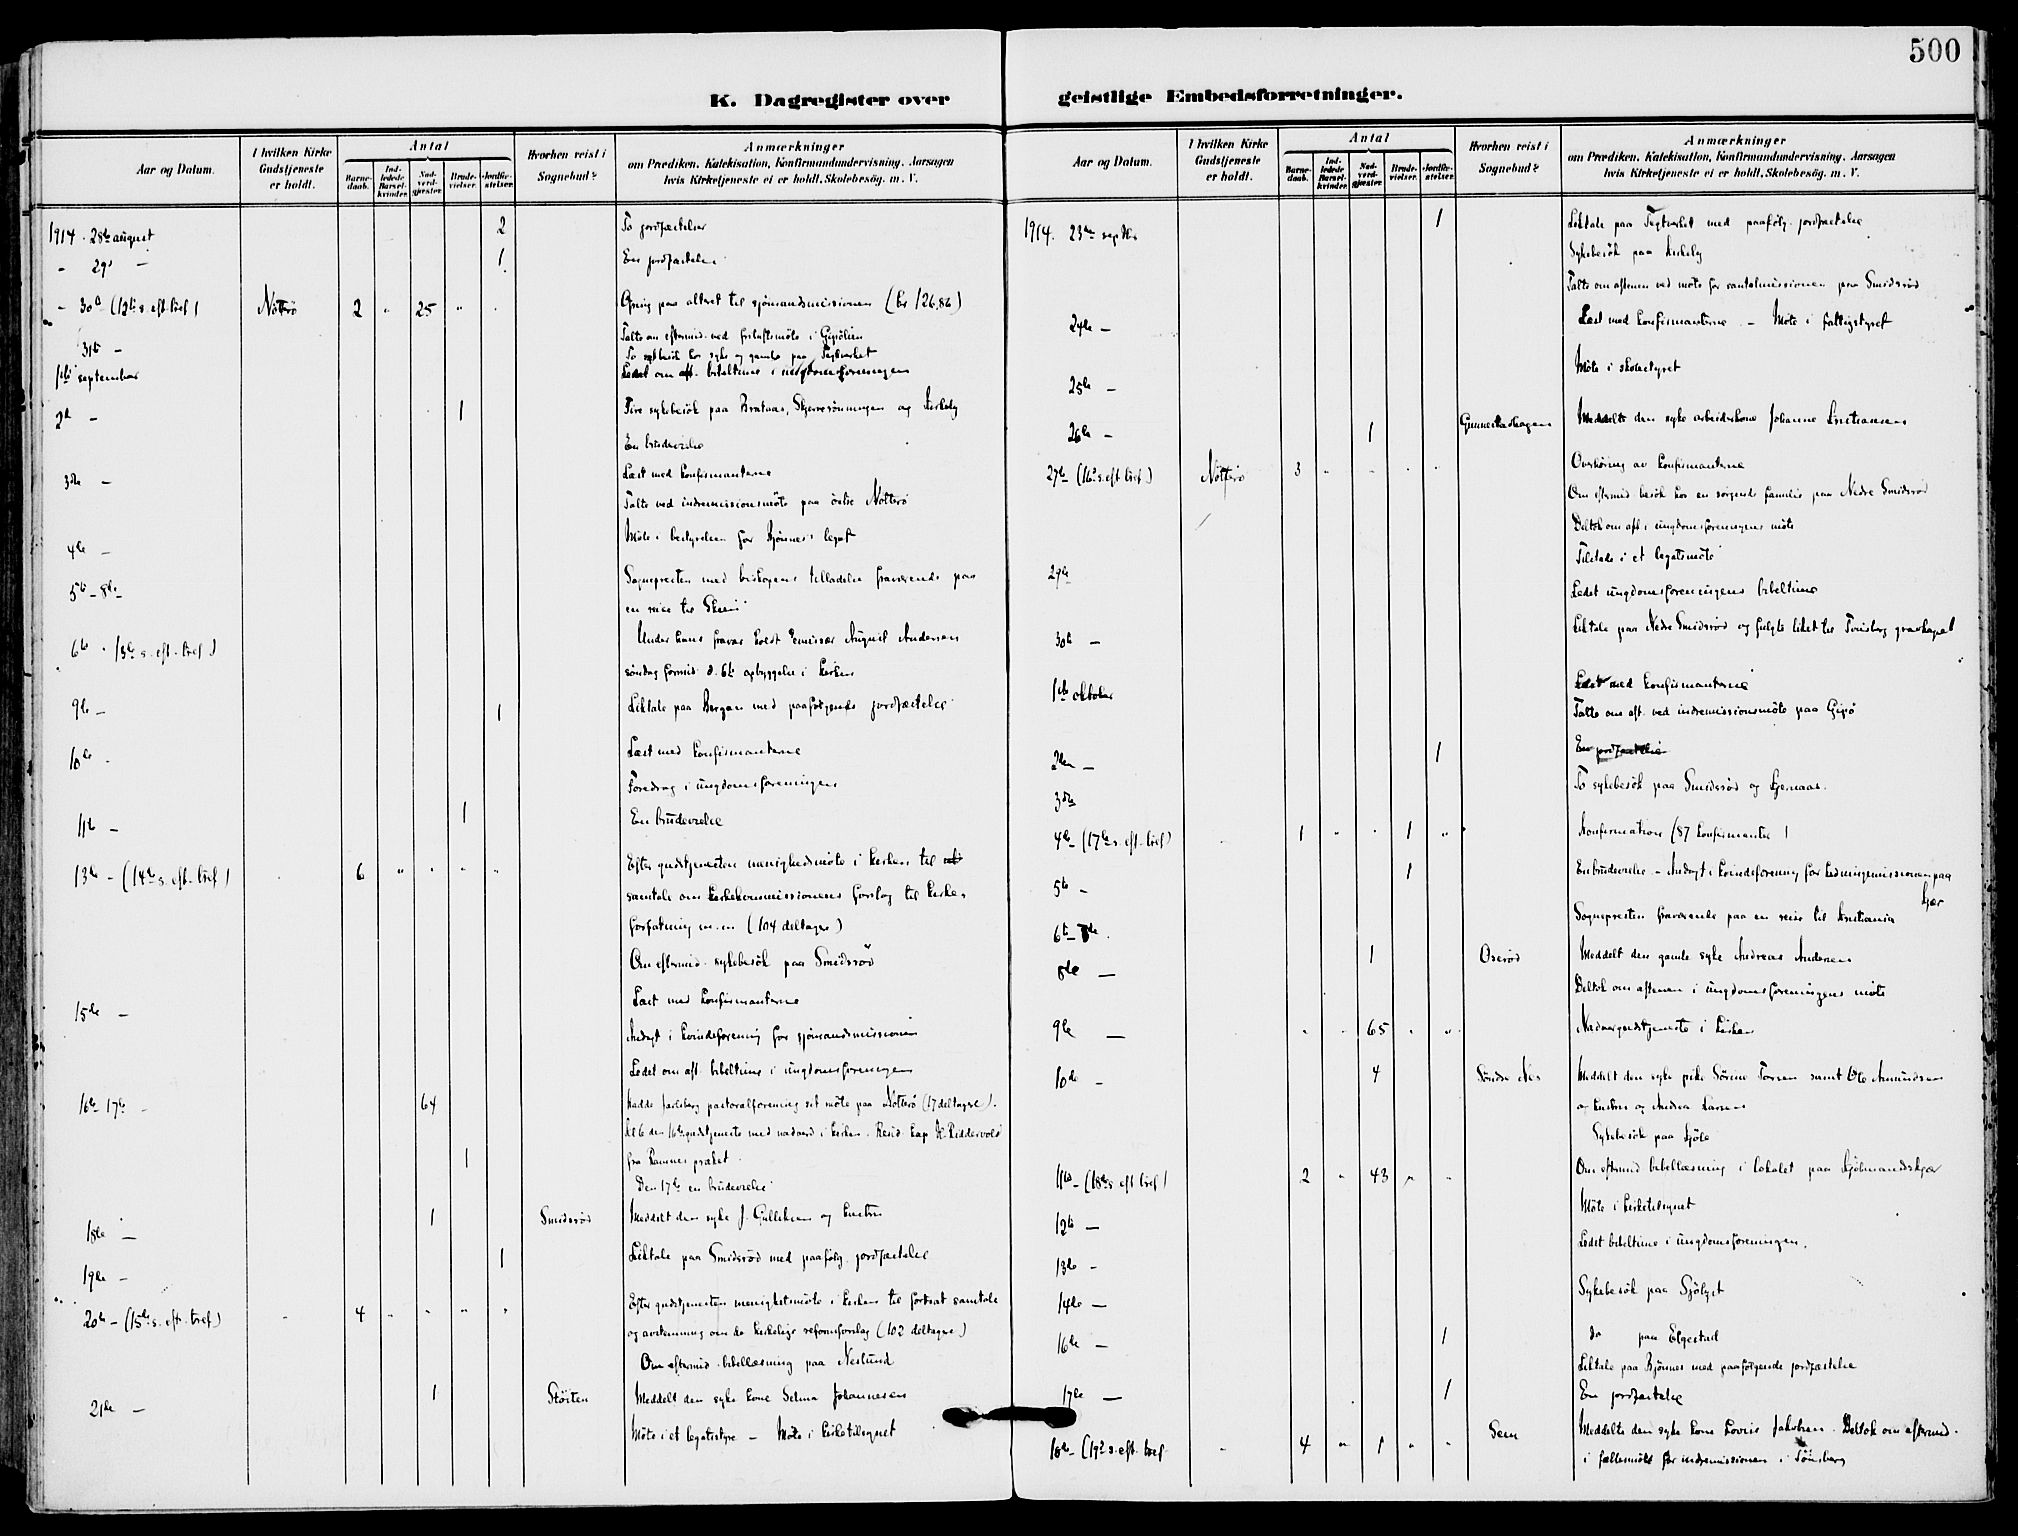 500
K. Dagregister over
geistlige Embedsforretninger.
Aar og Datum.
I hvilken Kirke Gudstjeneste er holdt.
Antal
Barnedaab.
Indledede Barselkvinder.
Nadverdgjester.
Brudevielser.
Jordfæstelser.
Hvorhen reist i Sognebud?
Anmærkninger
om Prædiken, Katekisation, Konfirmandundervisning, Aarsagen
hvis Kirketjeneste ei er holdt, Skolebesög, m. V.
1914. 28de august 2 To jordfæstelser
- 29de - 1 En jordfæstelse
- 30te (12te s. eft. tref.) Nötterö 2 " 25 " " Ofring paa alteret til sjömandsmissionen (kr 126,86)
Talte om eftermid. ved friluftsmöte i Gipölien
31te - To sykebesök hos syke og gamle paa Teglverket
1ste september Ledet om aft. bibeltime i ungdomsforeningen
2de - 1 Fire sykebesök paa Brataas, Skjerveröningen og Kirkely
En brudevielse
3die - Læst med konfirmanterne
Talte ved indremissionsmöte paa östre Nötterö
4de - Möte i bestyrelsen for Bjönnes legat
5te - 8de - Sognepresten med biskopens tilladelse fraværende paa
en reise til Skien
6te - (13de s. eft. tref.) Under hans fravær holdt Emissær August Andersen
söndag formid. d. 6te opbyggelse i kirken
9de - 1 Liktale paa Bergan med paafölgende jordfæstelse
10de - Læst med konfirmanterne
Foredrag i ungdomsforeningen
11te - 1 En brudevielse
13de - (14de s. eft. tref.) " 6 " " " " Efter gudstjenesten menighedsmöte i kirken til
samtale om kirkekommissionens forslag til kirke-
forfatning m. m. (104 deltagere)
Om eftermid. sykebesök paa Smidsröd
15de - Læst med konfirmanterne
Andagt i kvindeforening for sjömandsmissionen
Ledet om aft. bibeltime i ungdomsforeningen
16de - 17de - 64 Hadde Jarlsberg pastoralforening sit möte paa Nötterö (17 deltagere).
Kl 6 den 16de gudstjeneste med nadverd i kirken. Resid. kap. Riddervold
fra Ramnes præket.
1 Den 17de en brudevielse
18de - 1 Smidsröd Meddelt den syke J. Gulliksen og hustru
19de - 1 Liktale paa Smidsröd med paafölg. jordfæstelse
20de - (15de s. eft. tref.) " 4 " " " " Efter gudstjenesten menighetsmöte i kirken til fortsat samtale
og avstemning om de kirkelige reformforslag (102 deltagere)
Om eftermid. bibellæsning paa Neslund
21de - 1 Störten Meddelt den syke kone Selma Johannesen
Möte i et legatstyre - Möte i kirketilsynet
Aar og Datum.
I hvilken Kirke Gudstjeneste er holdt.
Antal
Barnedaab.
Indledede Barselkvinder.
Nadverdgjester.
Brudevielser.
Jordfæstelser.
Hvorhen reist i Sognebud?
Anmærkninger
om Prædiken, Katekisation, Konfirmandundervisning, Aarsagen
hvis Kirketjeneste ei er holdt, Skolebesög, m. V.
1914. 23de septbr 1 Liktale paa Teglverket med paafölg. jordfæstelse
Sykebesök paa Kirkely
Talte om aftenen ved möte for santalmissionen paa Smidsröd
24de - Læst med konfirmanterne - Möte i fattigstyret
25de - Möte i skolestyret
26de - 1 Gunnerstadhagen Meddelt den syke arbeiderkone Johanne Kristiansen
27de - (16de s. eft. tref.) Nötterö 3 " " " " Overhöring av konfirmanterne
Om eftermid. besök hos en sörgende familie paa Nedre Smidsröd
Deltok om aft. i ungdomsforeningens möte
29de Tilstede i et legatsmöte
Ledet ungdomsforeningens bibeltime
30te - Liktale paa Nedre Smidsröd og fulgte liket til Tönsberg gravkapel
1ste oktober Læst med konfirmanterne
Talte om aft. ved indremissionsmöte paa Gipö
2den - 1 En jordfæstelse
3die To sykebesök paa Smidsröd og Kjernaas.
4de - (17de s. eft. tref.) " 1 " " 1 " Konfirmation (87 konfirmanter)
5te - 1 En brudevielse - Andagt i kvindeforening for hedningemissionen paa
Kjær
6te - 7de. Sognepresten fraværende paa en reise til Kristiania
8de - 1 Oseröd Meddelt den gamle syke Andreas Andersen
Deltok om aftenen i ungdomsforeningens möte
9de - " " 65 " " Nadverdgudstjeneste i kirken
10de - 4 Söndre Nes Meddelt den syke pike Sörine Torsen samt Amundsen
og hustru og Andrea Larsen
Sykebesök paa Kjöle
11te - (18de s. eft. tref.) 2 " 43 " " Om eftermid. bibellæsning i lokalet paa
12te - Möte i kirketilsynet
13de - Ledet bibeltime i ungdomsforeningen.
14de - Sykebesök paa Sjölyst
16de - 1 do paa Elgestad
Liktale paa Bjönnes med paafölgende jordfæstelse
17de - 1 En jordfæstelse
18de - (19de s. eft. tref. " 4 " 1 " " Sem Meddelte den syke kone Lovise Jakobsen. Deltok om eftermid.
i fællesmöte for indremissionen i Tönsberg